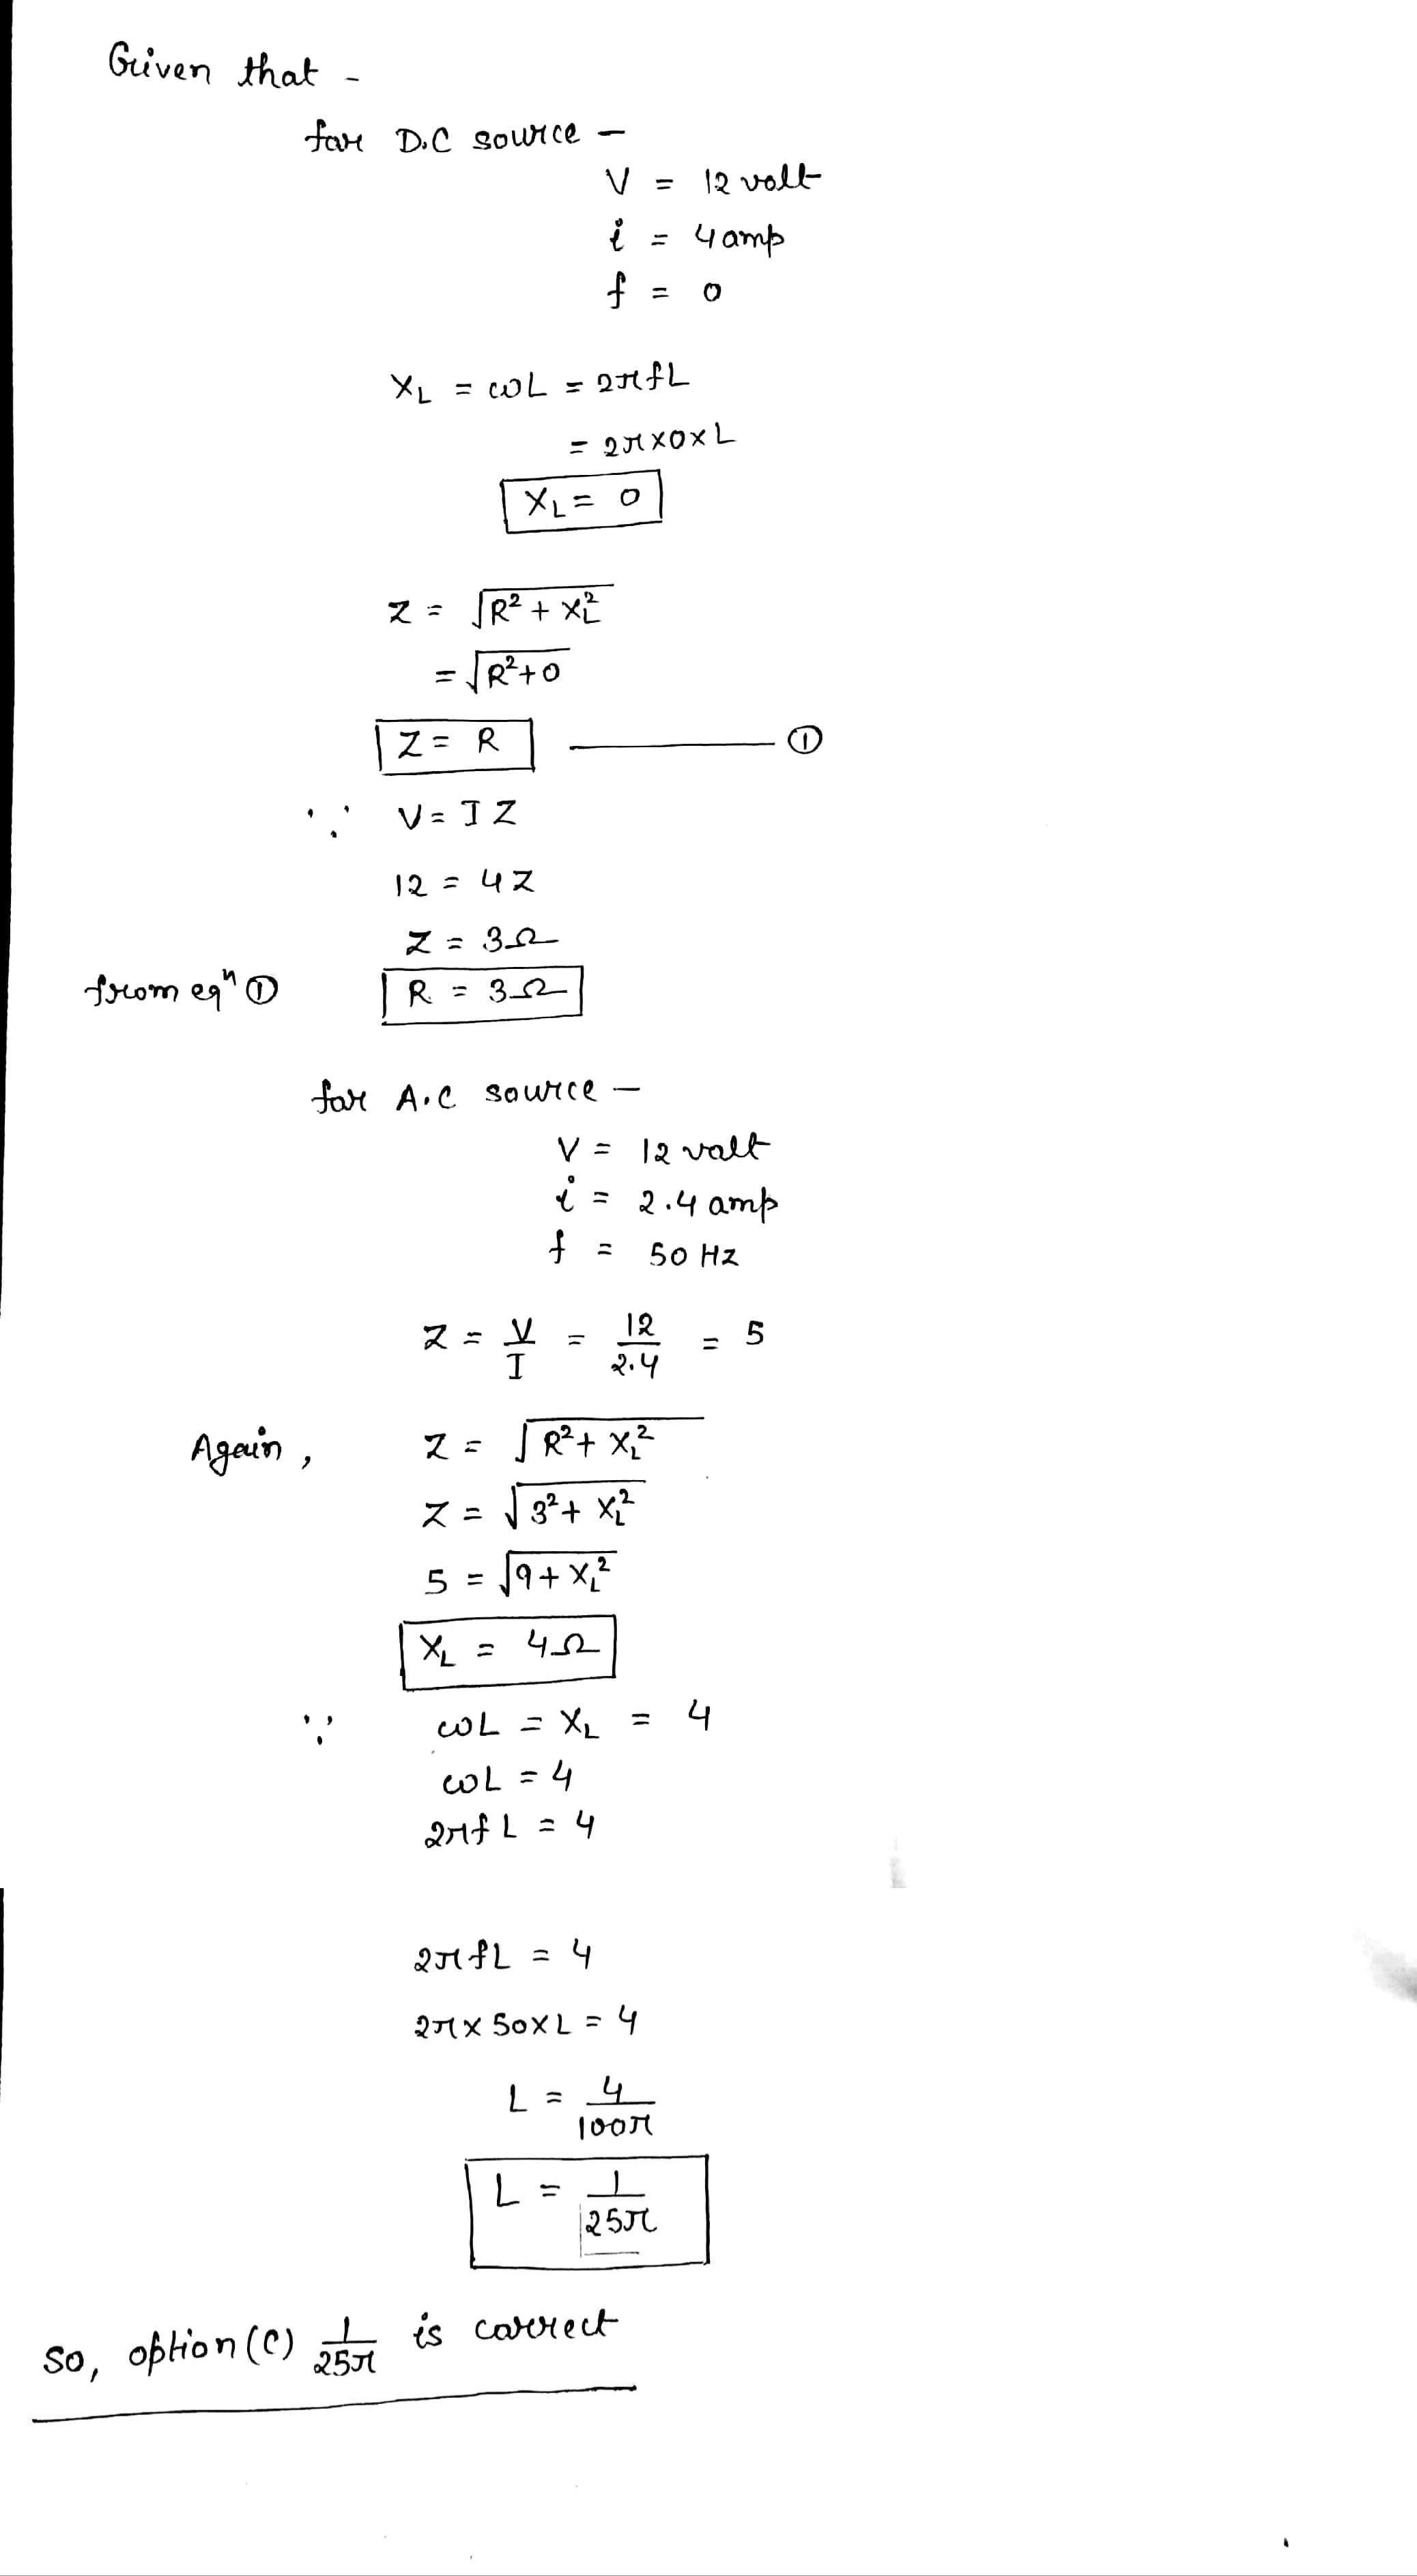 Given that -
for D.C source -
V = 12 volt
i = 4 amp
f = 0
X_L = ωL = 2πfL
= 2π×0×L
X_L = 0
Z = √(R² + X_L²)
= √(R²+0)
Z = R ——— ①
∵ V = I Z
12 = 4Z
Z = 3Ω
from eqⁿ ① R = 3Ω
for A.C source -
V = 12 volt
i = 2.4 amp
f = 50 Hz
Z = V/I = 12/2.4 = 5
Again, Z = √(R² + X_L²)
Z = √(3² + X_L²)
5 = √(9 + X_L²)
X_L = 4Ω
∵ ωL = X_L = 4
ωL = 4
2πf L = 4
2πfL = 4
2π×50×L = 4
L = 4/100π
L = 1/25π
so, option (C) 1/25π is correct